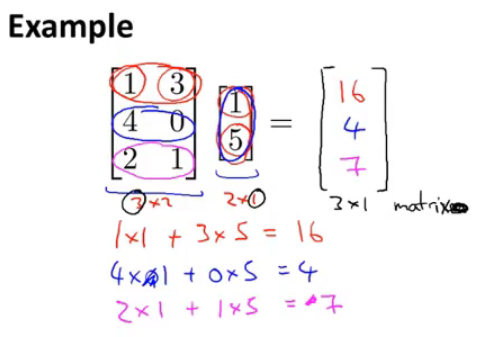 Example
[1 3; 4 0; 2 1] [1; 5] = [16; 4; 7]
3 × 2 2 × 1 3 × 1 matrix
1 × 1 + 3 × 5 = 16
4 × 1 + 0 × 5 = 4
2 × 1 + 1 × 5 = 7